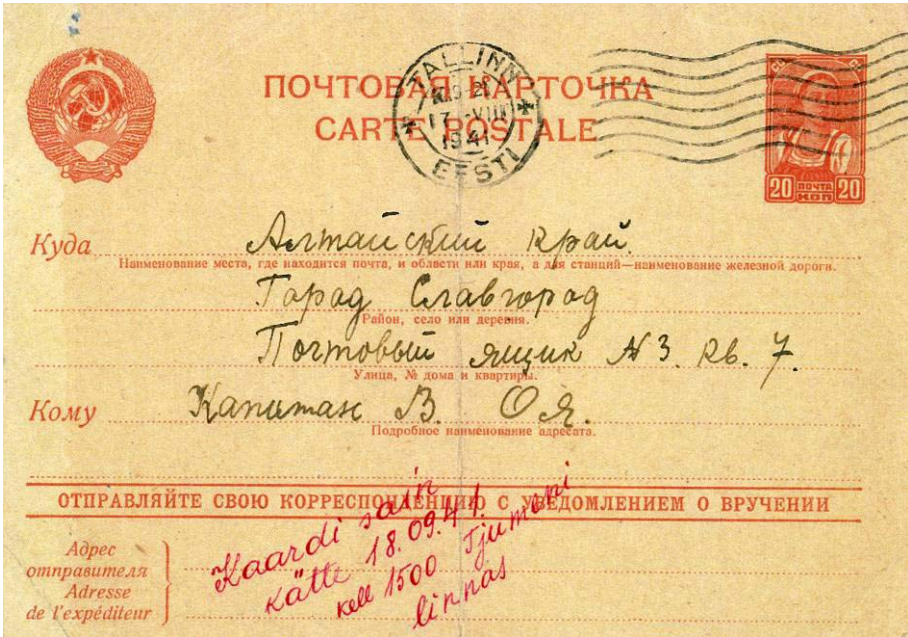 ПОЧТОВАЯ КАРТОЧКА
CARTE POSTALE
TALLINN
17 VIII
1941
EESTI
20 ПОЧТА 20
КОП
Куда Алтайский край.
Наименование места, где находится почта, и области или края, а для станций—наименование железной дороги.
Город Славгород
Район, село или деревня.
Почтовый ящик № 3. кв. 7.
Улица, № дома и квартиры.
Кому Капитан В. Оя.
Подробное наименование адресата.
ОТПРАВЛЯЙТЕ СВОЮ КОРРЕСПОНДЕНЦИЮ С УВЕДОМЛЕНИЕМ О ВРУЧЕНИИ
Адрес
отправителя
Adresse
de l'expéditeur
Kaardi sain
kätte 18.09.41.
kell 1500 Tjumeni
linnas